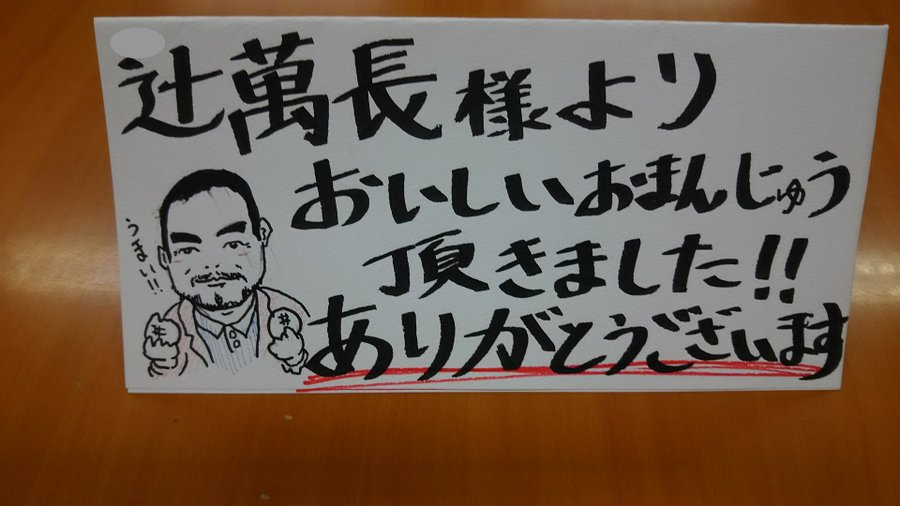 辻萬長様より
おいしいおまんじゅう
頂きました!!
ありがとうございます
うまい!!